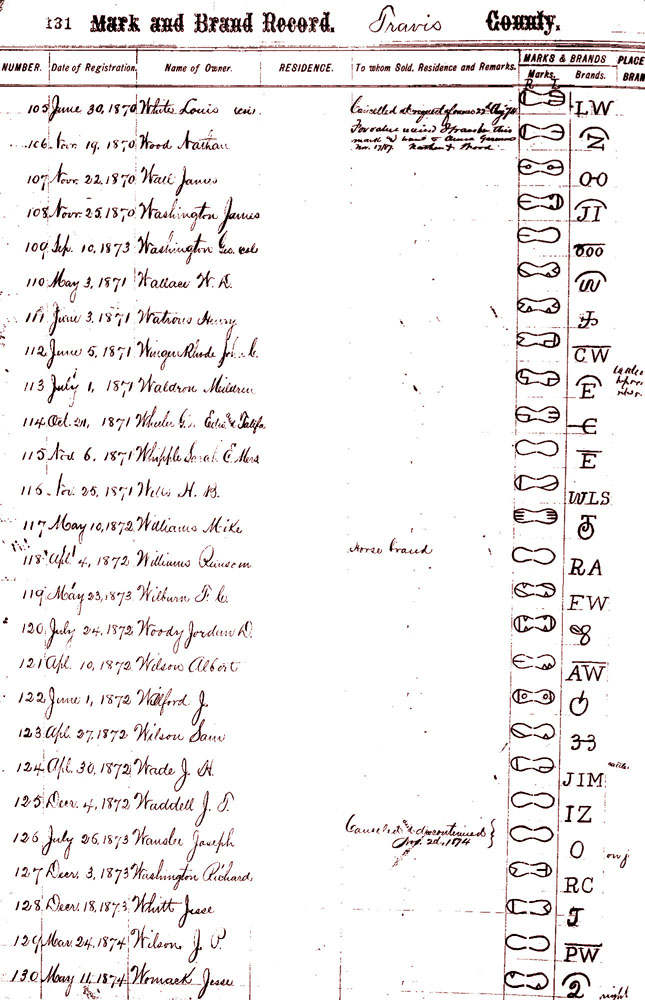 131 Mark and Brand Record. Travis County.
MARKS & BRANDS PLACE
NUMBER. Date of Registration. Name of Owner. RESIDENCE. To whom Sold, Residence and Remarks. Marks. Brands. BRAN
R L
105 June 30, 1870 White Louis Cancelled at request of owner LW
106 Nov. 19, 1870 Wood Nathan For value I transfer this N
mark & brand to
Nov. 17/87. Nathan Wood
107 Novr. 22, 1870 Wall James OO
108 Novr. 25, 1870 Washington James JI
109 Sep. 10, 1873 Washington Geo. col ooo
110 May 3, 1871 Wallace W. D. S
111 June 3, 1871 Watrous Henry
112 June 5, 1871 CW
113 July 1, 1871 Waldron E
114 Oct. 21, 1871 Wheeler G. E
115 Nov. 6, 1871 Whipple Sarah E. Mrs E
116 Nov. 25, 1871 Wells H. B. WLS
117 May 10, 1872 Williams Mike
118 Apl. 4, 1872 Williams Ransom Horse brand RA
119 May 23, 1873 Wilburn F. C. FW
120 July 24, 1872 Woody Jordan D.
121 Apl. 10, 1872 Wilson Albert AW
122 June 1, 1872 Walford J.
123 Apl. 27, 1872 Wilson Sam
124 Apl. 30, 1872 Wade J. H. JIM
125 Decr. 4, 1872 Waddell J. T. IZ
126 July 26, 1873 Joseph Canceled and discontinued O
2d, 1874
127 Decr. 3, 1873 Washington Richard RC
128 Decr. 18, 1873 Whitt Jesse J
129 Mar. 24, 1874 Wilson J. P. PW
130 May 11, 1874 Womack Jesse 2 right